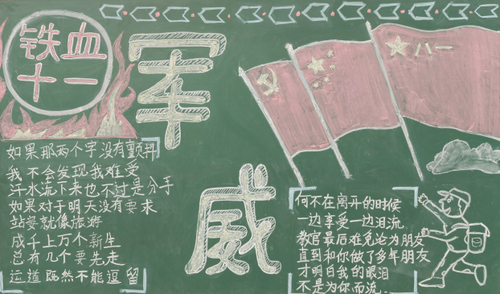 铁血
十一
军
威
八一
如果那两个字没有颤抖
我不会发现我难受
汗水流下来也不过是分手
如果对于明天没有要求
站姿就像旅游
成千上万个新生
总有几个要先走
逗留
何不在离开的时候
一边享受一边泪流
教官最后难免沦为朋友
直到和你做了多年朋友
才明白我的眼泪
不是为你而流